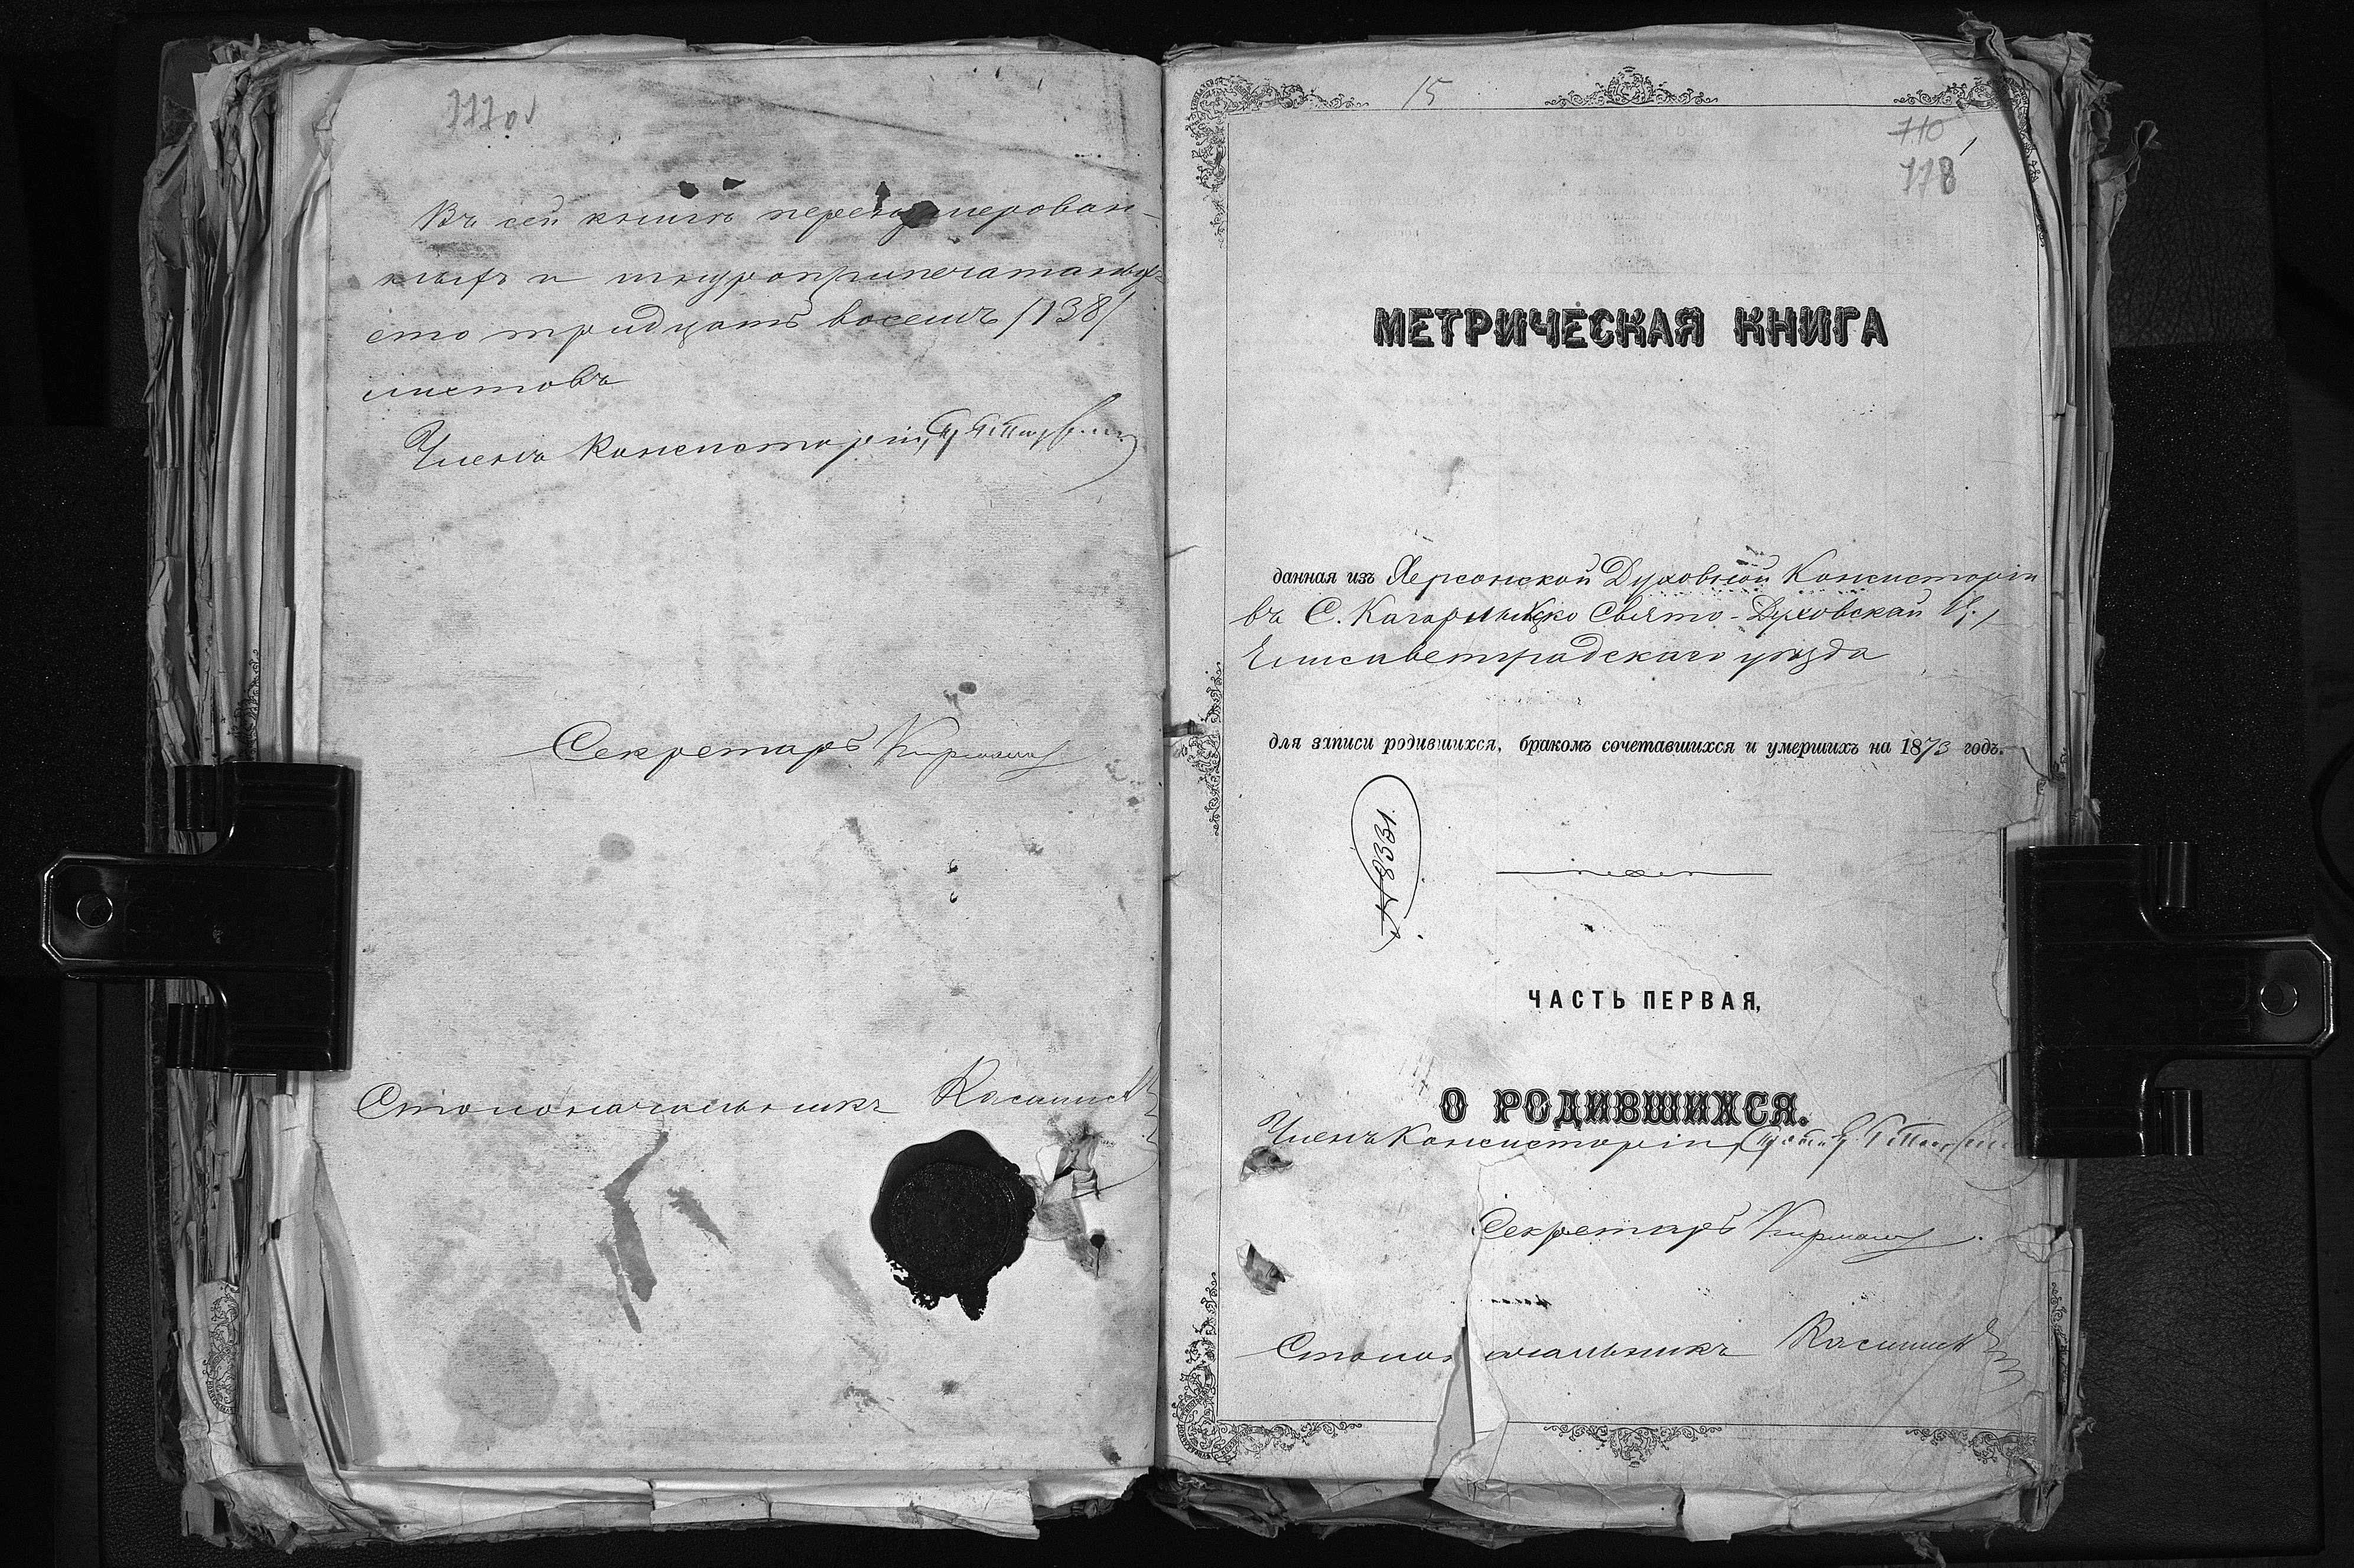 777об
Въ сей книгѣ перенумерован-
ныхъ и шнуроприпечатаныхъ
сто тридцать восемь /138/
листовъ
Членъ Консисторіи,
Секретарь
Столоначальникъ
15
710
1
778
МЕТРИЧЕСКАЯ КНИГА
данная изъ Херсонской Духовной Консисторіи
въ С. Кагарлыкско Свято-Духовской Ц.,
Елисаветградскаго уѣзда
для записи родившихся, бракомъ сочетавшихся и умершихъ на 1873 годъ.
№ 8331.
ЧАСТЬ ПЕРВАЯ,
О РОДИВШИХСЯ.
Членъ Консисторіи,
Секретарь
Столоначальникъ